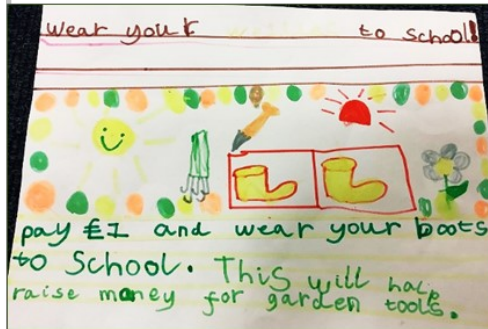 Wear your to School!
pay £1 and wear your boots
to School. This will halp
raise money for garden tools.